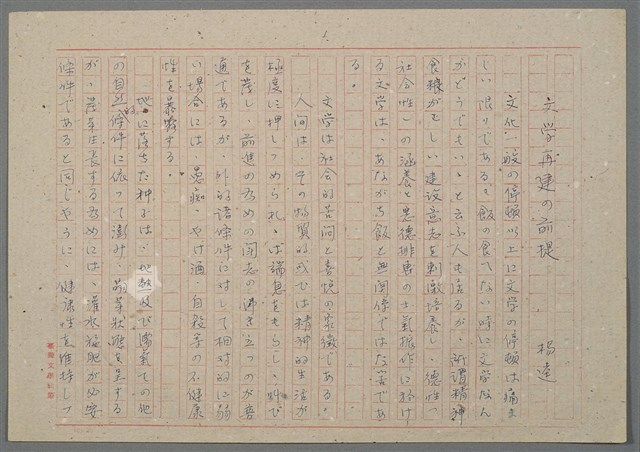 文学再建の前提
楊逵
文化一般の停頓以上に文学の停頓は痛ま
しい限りである。飯の食へない時に文学なん
かどうでもいゝと云ふ人も居るが、所謂精神
食糧がむしい建設意志を刺激培養し、徳性、
社会性の涵養と悪徳排撃の士氣振作に於け
る文学は、あながち飯と無関係ではな筈であ
る。
文学は社会的苦悶と喜悦の象徴である。
人间は、その物質的或は精神的生活が
極度に押しつめられゝば端息をもらし、叫び
を落し、前進のための闘志の沸き立つのが普
通であるが、外的諸條件に対して相対的に弱
い場合には、愚痴、やけ酒、自殺等の不健康
性を暴露する。
地に落ちた種子は、地熱及び湿氣その他
の自然的條件に依って澎み、萠芽狀態を呈する
が、芽生長するためには、灌水施肥が必要
條件であると同じやうに、健康性を維持しつ